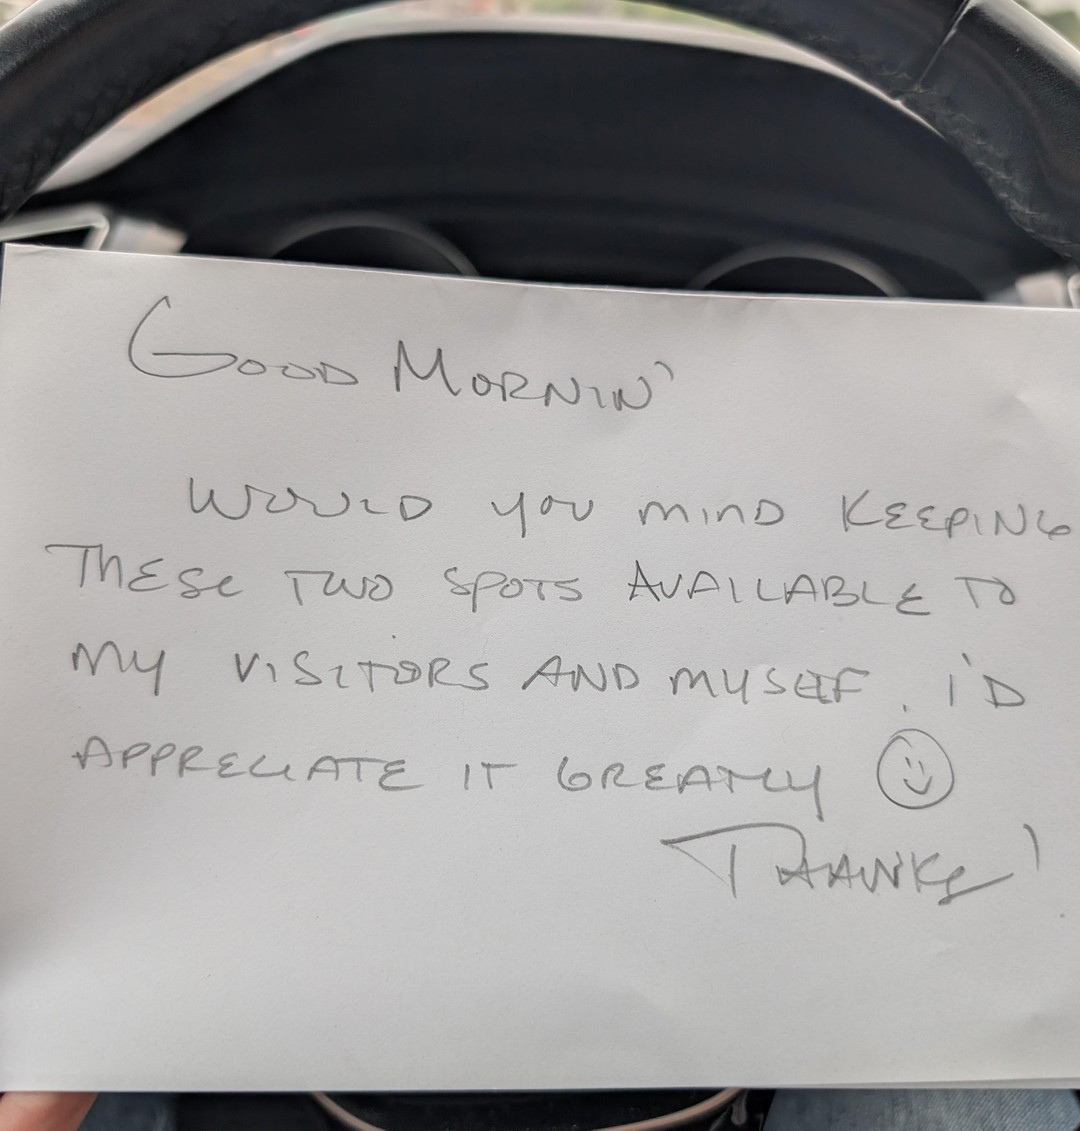 GOOD MORNIN'
WOULD YOU MIND KEEPING
THESE TWO SPOTS AVAILABLE TO
MY VISITORS AND MYSELF. I'D
APPRECIATE IT GREATLY ☺
THANKS!